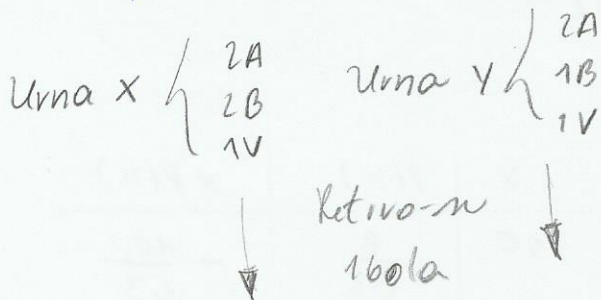 Urna X { 2A
2B
1V
Urna Y { 2A
1B
1V
Retira-se
1 bola